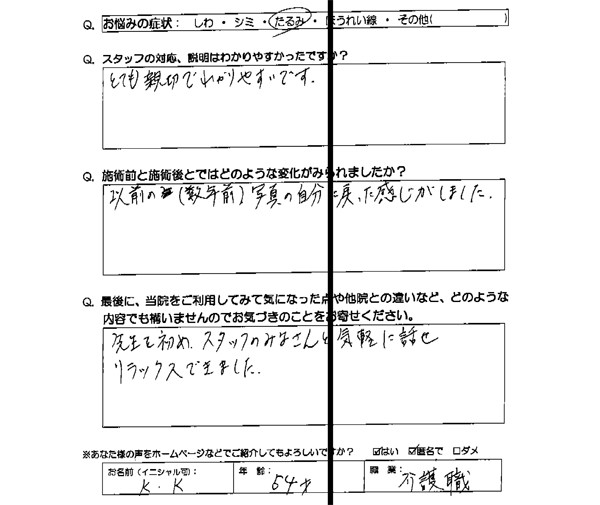 Q. お悩みの症状： しわ ・ シミ ・ たるみ ・ ほうれい線 ・ その他( )
Q. スタッフの対応、説明はわかりやすかったですか？
とても親切でわかりやすいです.
Q. 施術前と施術後とではどのような変化がみられましたか？
以前の (数年前) 写真の自分に戻った感じがしました.
Q. 最後に、当院をご利用してみて気になった点や他院との違いなど、どのような
内容でも構いませんのでお気づきのことをお寄せください。
先生を初め、スタッフのみなさんと気軽に話せ
リラックスできました.
※あなた様の声をホームページなどでご紹介してもよろしいですか？ ☑はい ☑匿名で □ダメ
お名前（イニシャル可）： 年 齢： 職 業：
K . K 54才 介護職